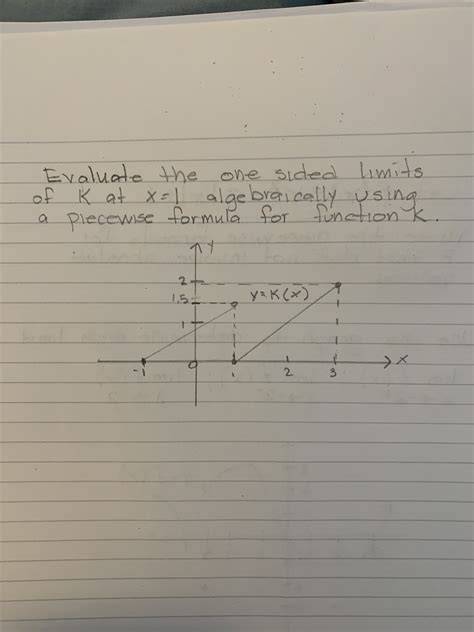 Evaluate the one sided limits
of K at x=1 algebraically using
a piecewise formula for function K.
Y
2
y=K(x)
1.5
1
-1 0 1 2 3 X